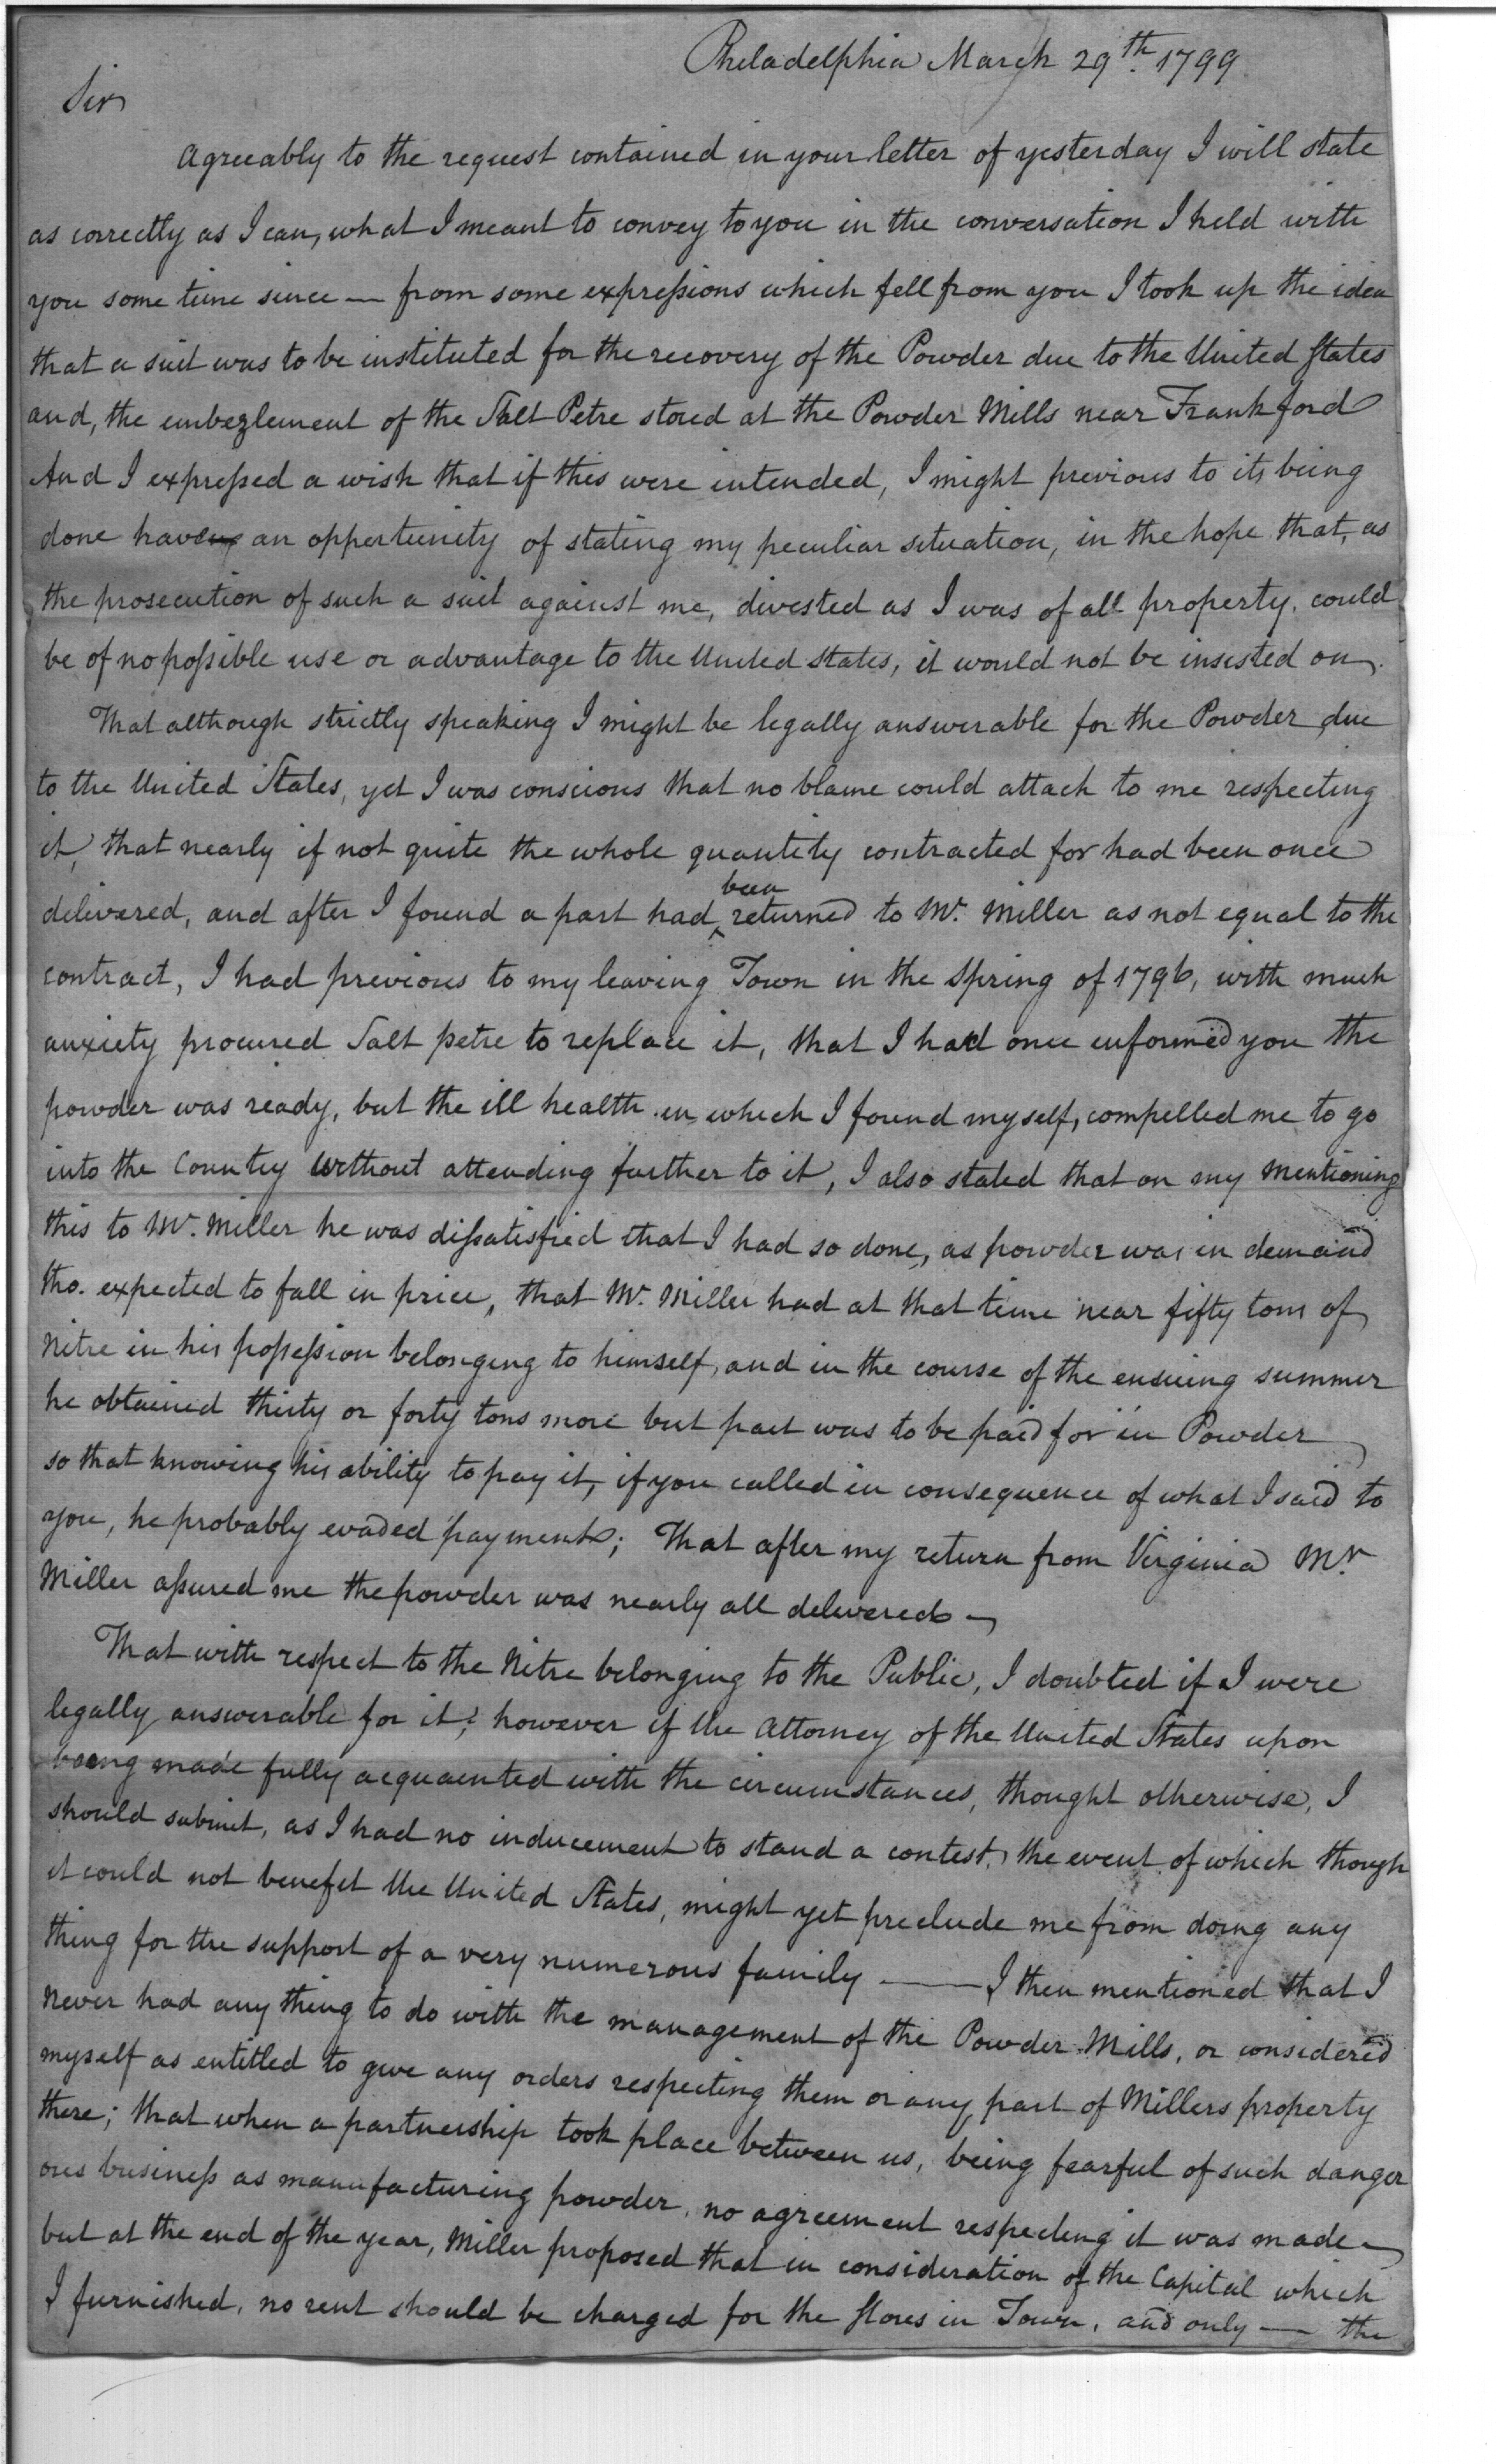 Philadelphia March 29th. 1799
Sir
Agreeably to the request contained in your letter of yesterday I will state
as correctly as I can, what I meant to convey to you in the conversation I held with
you some time since — from some expressions which fell from you I took up the idea
that a suit was to be instituted for the recovery of the Powder due to the United States
and, the embezlement of the Salt Petre stored at the Powder Mills near Frankford
And I expressed a wish that if this were intended, I might previous to its being
done have an opportunity of stating my peculiar situation, in the hope that, as
the prosecution of such a suit against me, divested as I was of all property, could
be of no possible use or advantage to the United States, it would not be insisted on.
That although strictly speaking I might be legally answerable for the Powder due
to the United States, yet I was conscious that no blame could attach to me respecting
it, that nearly if not quite the whole quantity contracted for had been once
delivered, and after I found a part had been returned to Mr. Miller as not equal to the
contract, I had previous to my leaving Town in the Spring of 1796, with much
anxiety procured Salt petre to replace it, that I had once informed you the
powder was ready, but the ill health in which I found myself, compelled me to go
into the Country without attending further to it, I also stated that on my mentioning
this to Mr. Miller he was dissatisfied that I had so done, as powder was in demand
tho. expected to fall in price, that Mr. Miller had at that time near fifty tons of
Nitre in his possession belonging to himself, and in the course of the ensuing summer
he obtained thirty or forty tons more but part was to be paid for in Powder
so that knowing his ability to pay it, if you called in consequence of what I said to
you, he probably evaded payment; That after my return from Virginia Mr.
Miller assured me the powder was nearly all delivered —
That with respect to the Nitre belonging to the Public, I doubted if I were
legally answerable for it; however if the Attorney of the United States upon
being made fully acquainted with the circumstances, thought otherwise, I
should submit, as I had no inducement to stand a contest, the event of which though
it could not benefit the United States, might yet preclude me from doing any
thing for the support of a very numerous family —— I then mentioned that I
never had any thing to do with the management of the Powder Mills, or considered
myself as entitled to give any orders respecting them or any part of Millers property
there; that when a partnership took place between us, being fearful of such danger
ous business as manufacturing powder, no agreement respecting it was made —
but at the end of the year, Miller proposed that in consideration of the Capital which
I furnished, no rent should be charged for the Stores in Town, and only — the